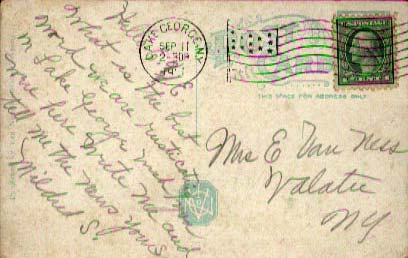 Hello E
What is the best
word we are rusticating
in Lake George wish you
were here write me and
tell me the news yours
Mildred S.
LAKE GEORGE, N.Y.
SEP 11
2-30P
THIS SPACE FOR ADDRESS ONLY
Mrs E Van Ness
Valatie
NY